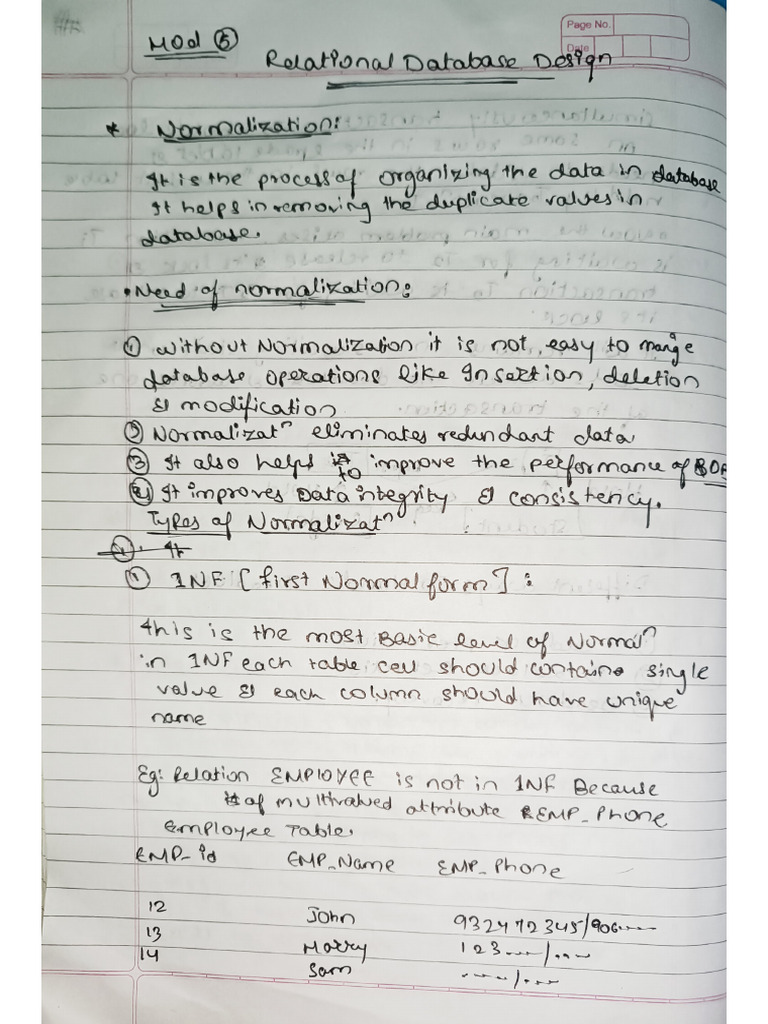 Mod 5
Page No.
Date
Relational Database Design
* Normalization:
It is the process of organizing the data in database
It helps in removing the duplicate values in
database.
• Need of normalization:
① Without Normalization it is not easy to mange
database operations like Insertion, deletion
& modification
② Normalizatⁿ eliminates redundant data
③ It also helps to improve the performance of
④ It improves Data integrity & consistency.
Types of Normalizatⁿ
① 1NF [first Normal form]:
this is the most Basic level of Normalⁿ
in 1NF each table cell should contain single
value & each column should have unique
name
Eg: Relation EMPLOYEE is not in 1NF Because
of multivalued attribute EMP_Phone
Employee Table.
EMP_id EMP_Name EMP_Phone
12 John 9324712345/906----
13 Harry 123----/----
14 Sam ----/----